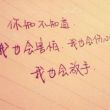 你知不知道.
我也会害怕，我也会伤心
我也会放手.